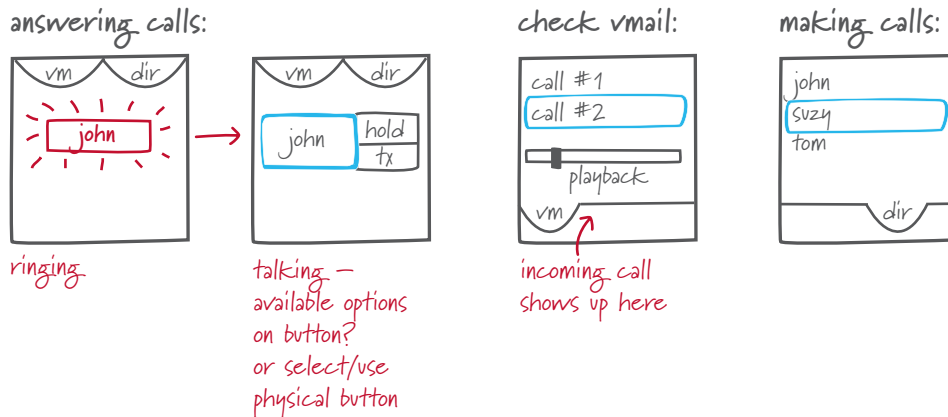 answering calls:
vm
dir
john
ringing
vm
dir
john
hold
tx
talking —
available options
on button?
or select/use
physical button
check vmail:
call #1
call #2
playback
vm
incoming call
shows up here
making calls:
john
suzy
tom
dir